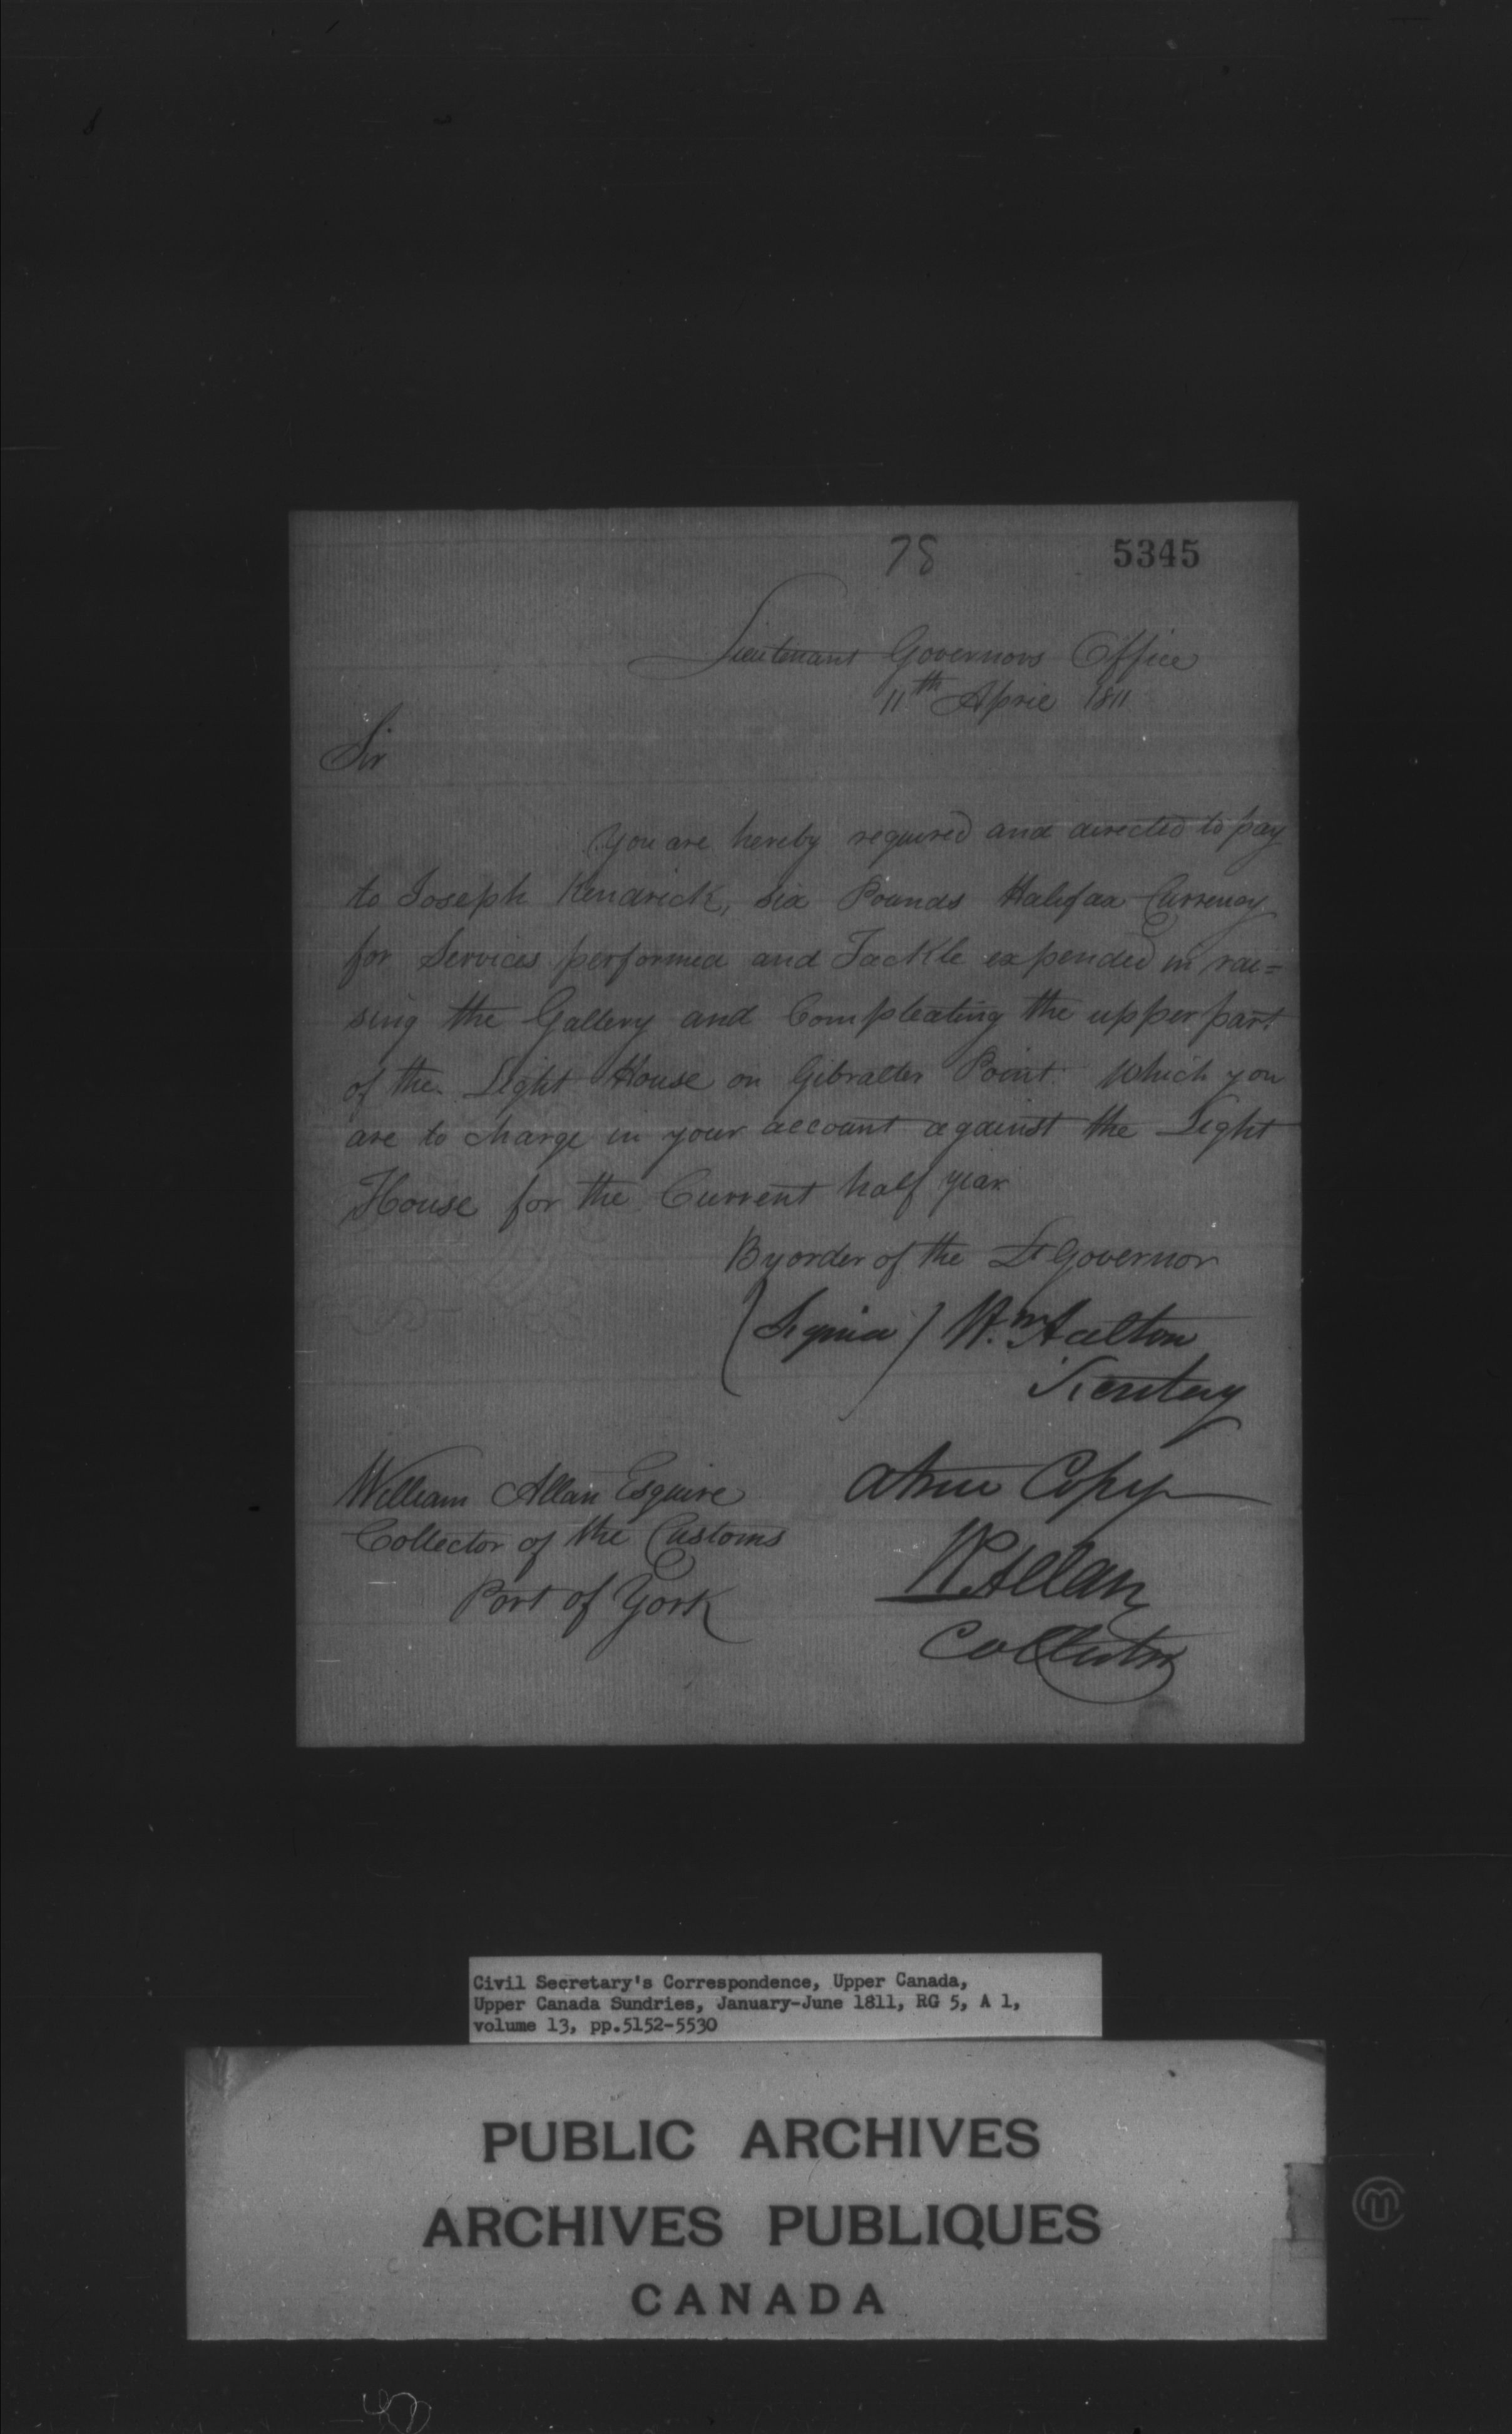 78 5345
Lieutenant Governors Office
11th April 1811
Sir
You are hereby required and directed to pay
to Joseph Kendrick, six Pounds Halifax Currency
for Services performed and Tackle expended in rai=
sing the Gallery and Compleating the upper part
of the Light House on Gibralter Point. Which you
are to charge in your account against the Light
House for the Current half year
By order of the Lt Governor
(Signed) Wm Halton
Secretary
William Allan Esquire
Collector of the Customs
Port of York
a true Copy
W Allan
Collector
Civil Secretary's Correspondence, Upper Canada,
Upper Canada Sundries, January-June 1811, RG 5, A 1,
volume 13, pp.5152-5530
PUBLIC ARCHIVES
ARCHIVES PUBLIQUES
CANADA